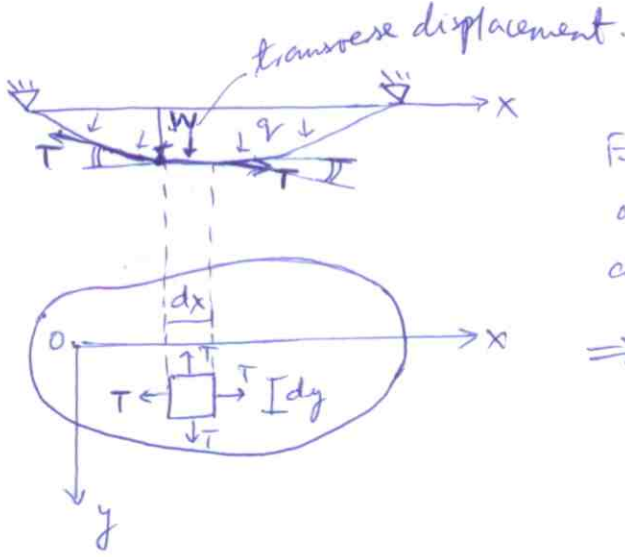 transverse displacement.
x
W
q
T
T
dx
O
x
T
T
T
dy
T
y